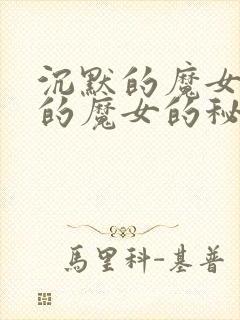 沉默的魔女
的魔女的秘
馬里科-基普